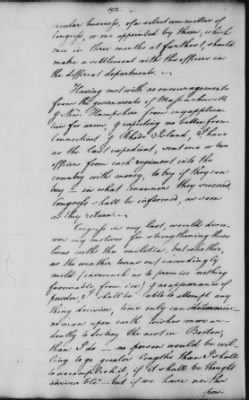 182.
cular business, of a select committee of
Congress, or one appointed by them, which
can in three months at farthest, should
make a settlement with the officers in
the different departments.
Having met with no encouragement
from the governments of Massachusetts
& New Hampshire from my applica-
tion for arms, & expecting no better from
Connecticut & Rhode Island, I have
as the last expedient, sent one or two
officers from each regiment into the
country with money, to try if they can
buy — in what manner they succeed,
Congress shall be informed, as soon
as they return.
Congress in my last, would discover
my motives for strengthening these
lines with the militia, but whether
as the weather turns out exceedingly
mild (insomuch as to promise nothing
favourable from ice) & no appearance of
powder, I shall be able to attempt any
thing decisive, time only can
no man upon earth wishes more ar-
dently to destroy the nest in Boston,
than I do — no person would be wil-
ling to go greater lengths than I shall
to accomplish it, if it shall be thought
advisable — but if we have neither